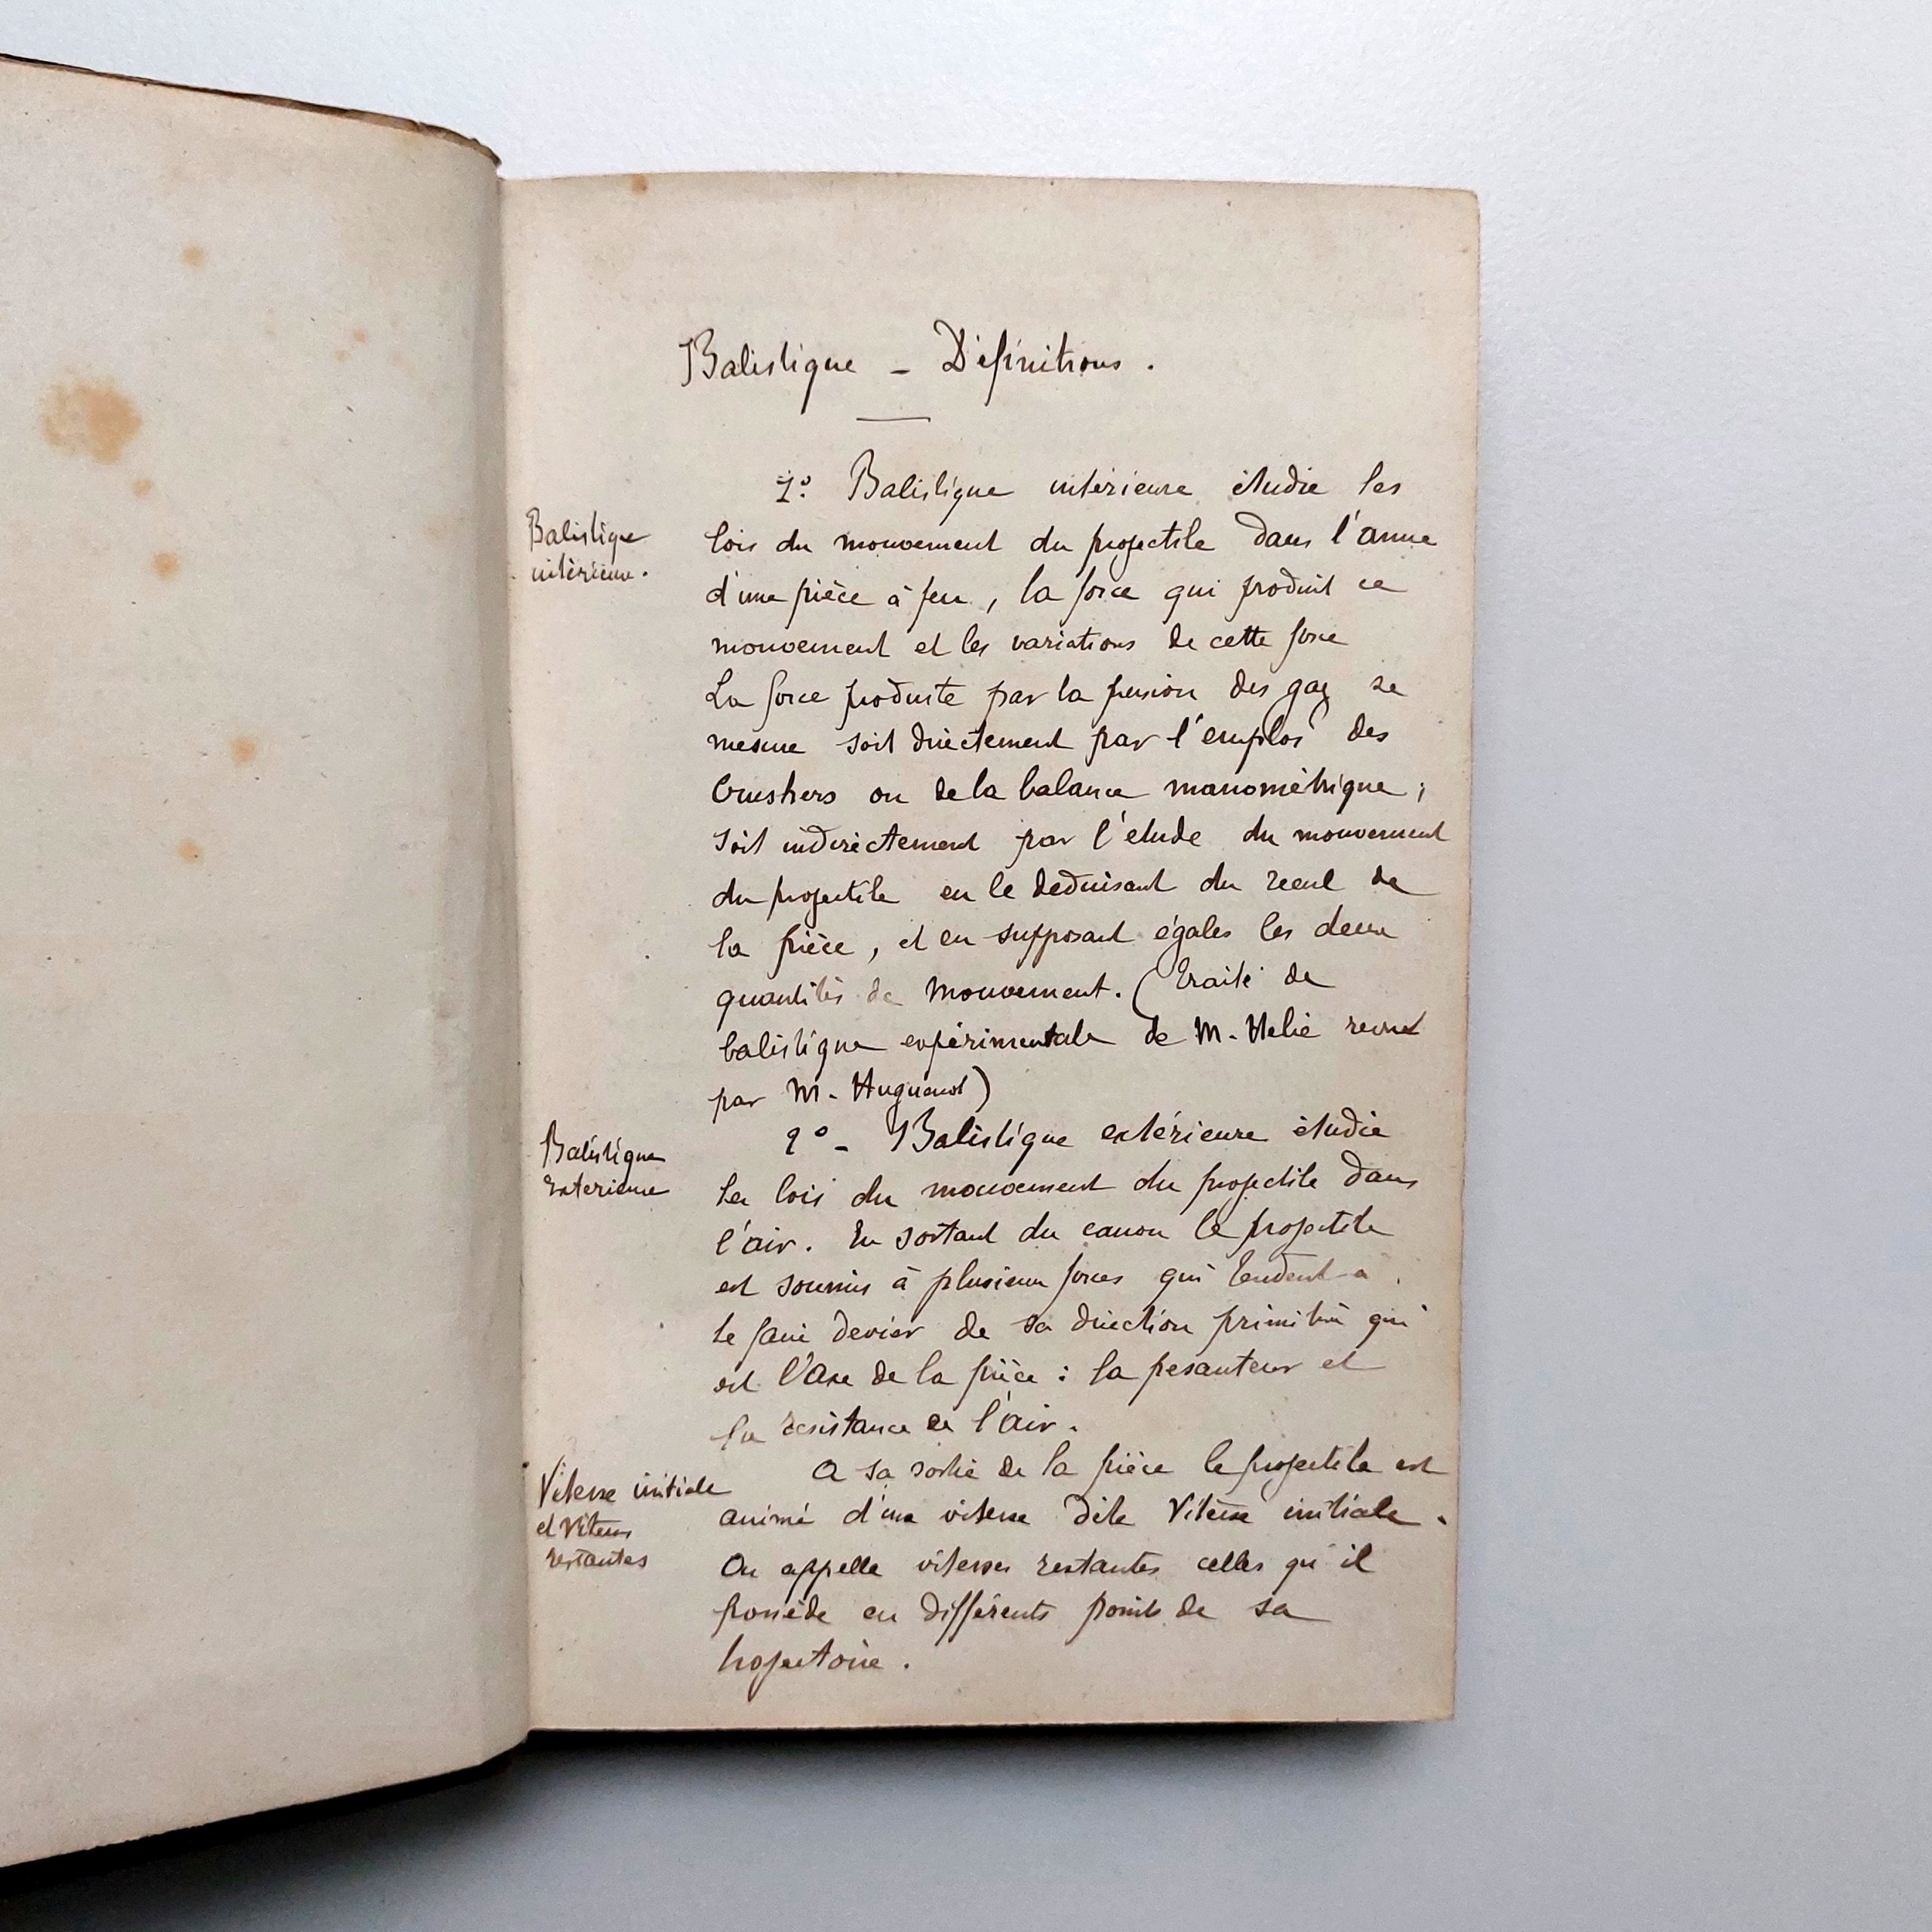 Balistique - Définitions.
1º. Balistique intérieure étudie les
Balistique
intérieure.
lois du mouvement du projectile dans l'ame
d'une pièce à feu, la force qui produit ce
mouvement et les variations de cette force
La force produite par la pression des gaz se
mesure soit directement par l'emploi des
Crushers ou de la balance manométrique;
soit indirectement par l'etude du mouvement
du projectile en le deduisant du recul de
la pièce, et en supposant égales les deux
quantités de mouvement. (Traité de
balistique expérimentale de M. Helie
par M. Hugoniot)
2º - Balistique extérieure étudie
Balistique
exterieure
les lois du mouvement du projectile dans
l'air. En sortant du canon le projectile
est soumis à plusieurs forces qui tendent à
le faire devier de sa direction primitive qui
est l'axe de la pièce : la pesanteur et
la resistance de l'air.
A sa sortie de la pièce le projectile est
Vitesse initiale
et Vitesses
restantes
animé d'une vitesse dite Vitesse initiale.
On appelle vitesses restantes celles qu'il
possède en différents points de sa
trajectoire.